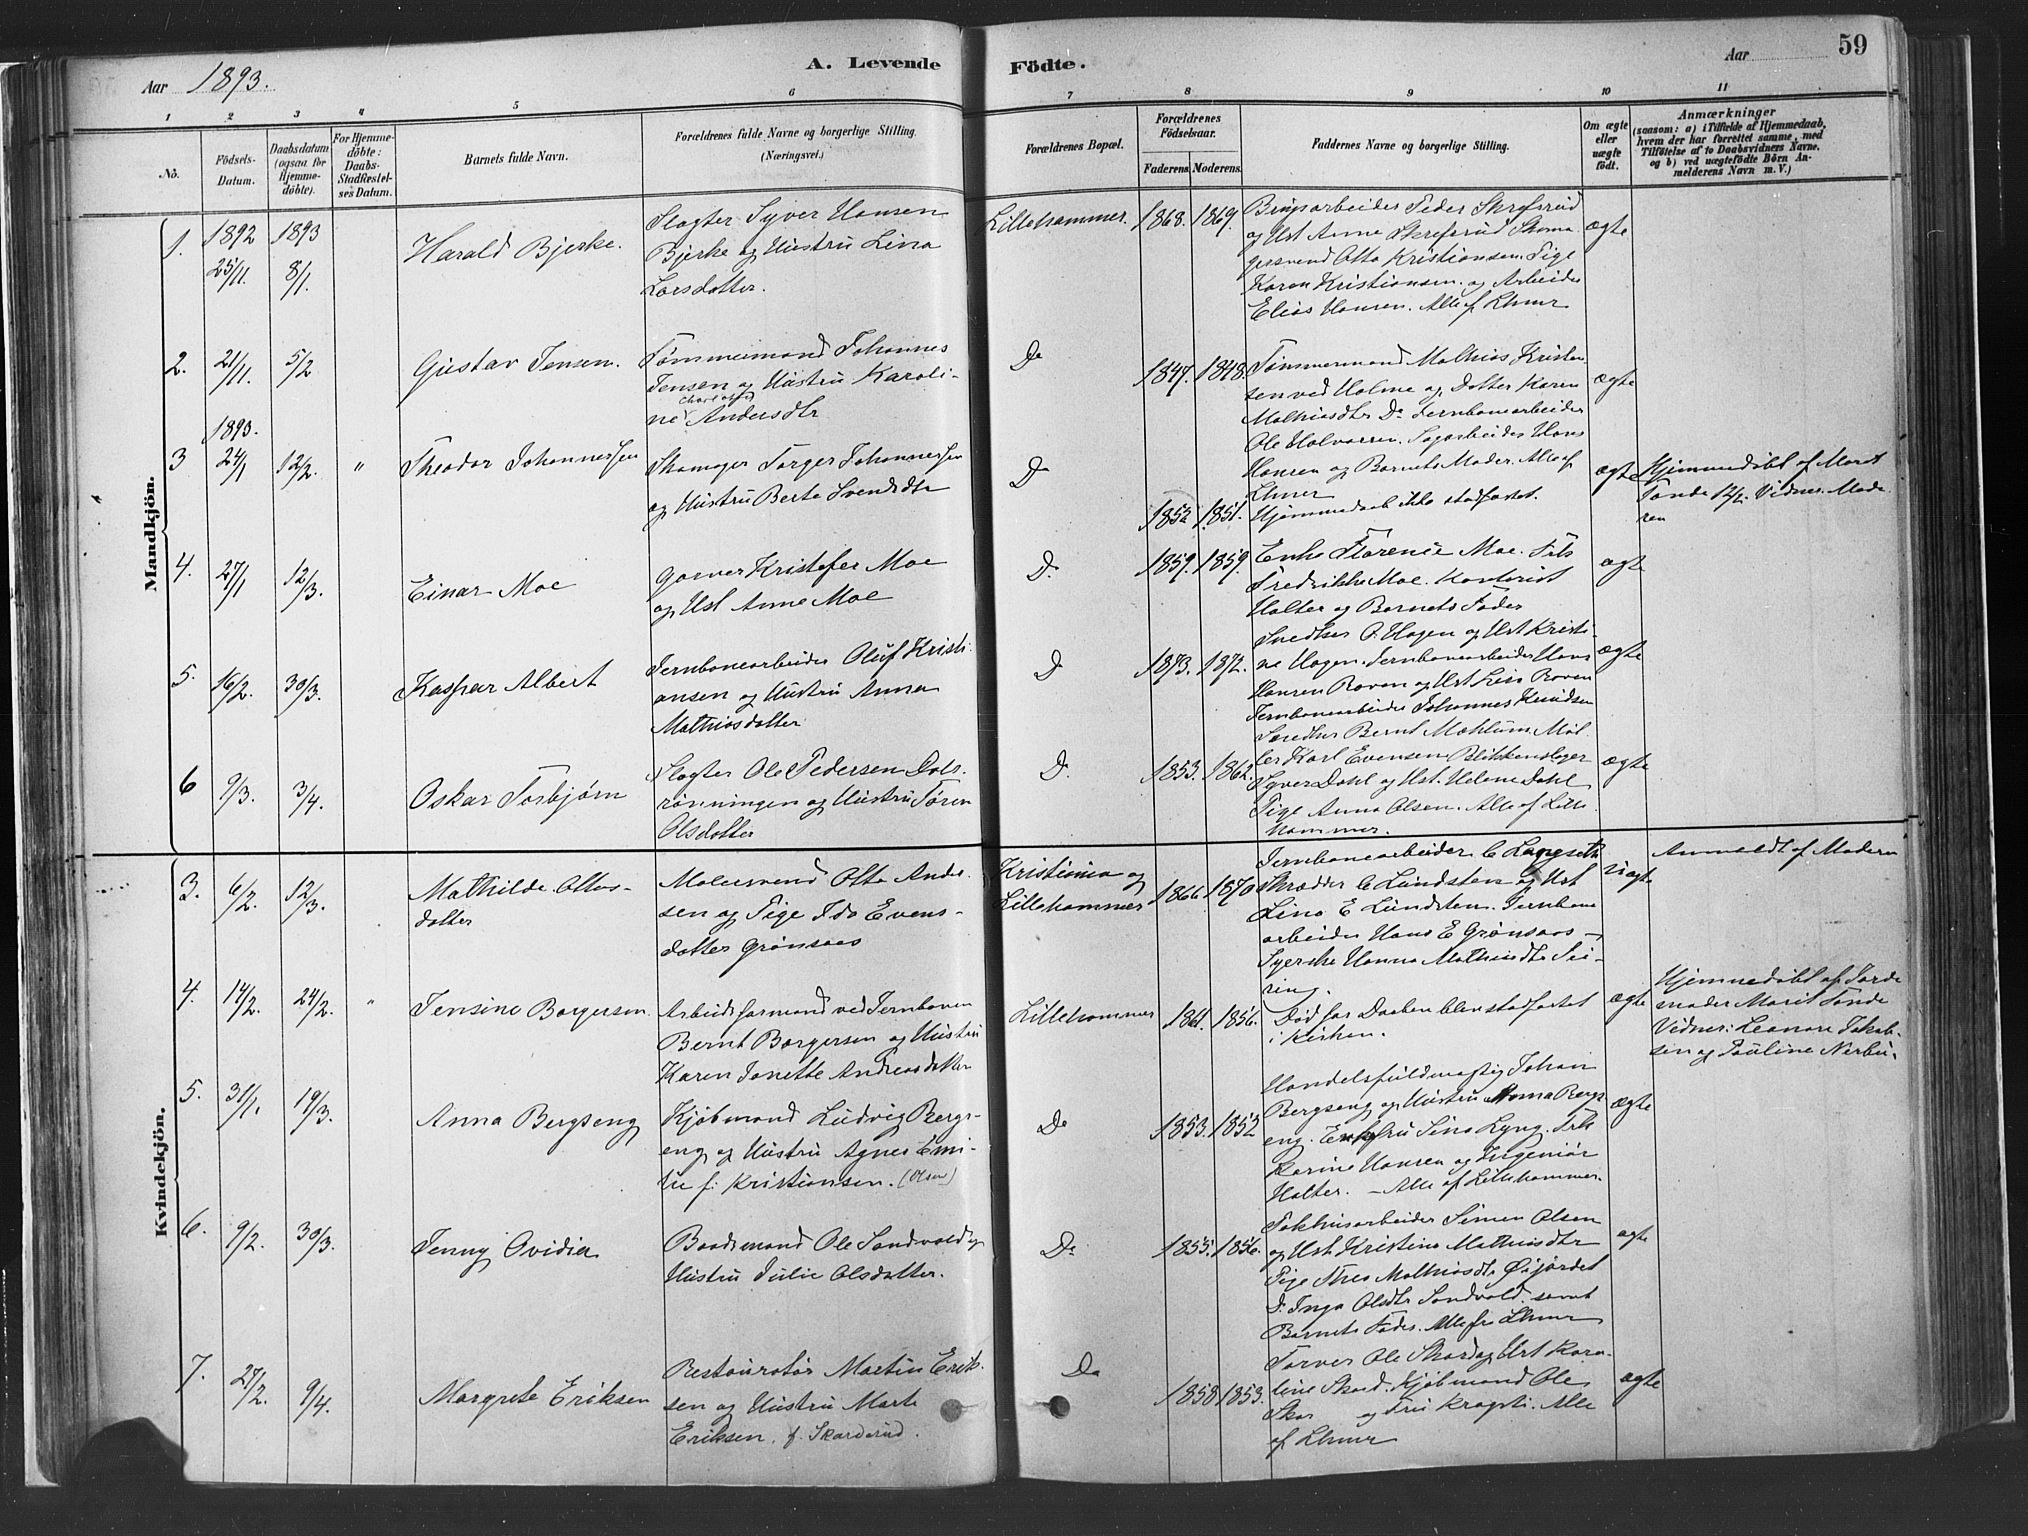 Aar 1893.
A. Levende
Födte.
Aar
59
1
2
3
4
5
6
7
8
9
10
11
No.
Födsels-
Datum.
Daabsdatum
(ogsaa for
Hjemme-
döbte).
For Hjemme-
döbte:
Daabs-
Stadfæstel-
ses Datum.
Barnets fulde Navn.
Forældrenes fulde Navne og borgerlige Stilling.
(Næringsvei.)
Forældrenes Bopæl.
Forældrenes
Födselsaar.
Faderens.
Moderens.
Faddernes Navne og borgerlige Stilling.
Om ægte
eller
uægte
födt.
Anmærkninger
(saasom: a) i Tilfælde af Hjemmedaab,
hvem der har forrettet samme, med
Tilföielse af to Daabsvidners Navne.
og b) ved uægtefödte Börn An-
melderens Navn m. V.)
Mandkjön.
1. 1892 25/11. 1893 8/1.
Harald Bjerke.
Slagter Syver Hansen
Bjerke og Hustru Lina
Larsdatter.
Lillehammer. 1868. 1869.
Brugsarbeider Peder Skrefsrud
og Hst Anne Skrefsrud Skoma
gersvend Otto Kristiansen. Pige
Karen Kristiansen. og Arbeider
Elias Hansen. Alle af Lhmr
ægte
2. 21/11. 5/2
Gustav Jensen.
Tømmermand Johannes
Jensen og Hustru Karoli-
ne Andersdtr
Do 1847. 1848.
Tømmermand Mathias Kristen
sen ved Holme og Datter Karen
Mathiasdtr Do Jernbanearbeider
Ole Halvorsen. Sagarbeider Hans
Hansen og Barnets Moder. Alle af
Lhmr
ægte
1893.
3 24/1 12/2. "
Theodor Johannessen
Skomager Torger Johannessen
og Hustru Berte Svendsdtr
Do 1852 1851.
Hjemmedaab ikke stadfæstet.
ægte
Hjemmedøbt af Marit
Tande 12/2. Vidner. Mode
ren
4. 27/1 12/3.
Einar Moe
Garver Kristofer Moe
og Hst Anne Moe
Do 1859. 1859.
Enke Florence Moe. Frk
Fredrikke Moe. Kontorist
Halter og Barnets Fader
ægte
5. 16/2. 30/3.
Kaspar Albert
Jernbanearbeider Oluf Kristi
ansen og Hustru Anna
Mathiasdatter
Do 1873. 1872.
Snedker O. Hagen og Hst Kristi-
ne Hagen. Jernbanearbeider Hans
Hansen Roven og Hst Lisa Roven
Jernbanearbeider Johannes Knudsen
ægte
6 9/3. 3/4.
Oskar Torbjørn
Slagter Ole Pedersen Dals-
rønningen og Hustru Søren
Olsdatter
Do. 1853. 1862.
Snedker Bernt Mæhlum. Møl
ler Karl Evensen Blikkenslager
Syver Dahl og Hst. Helene Dahl
Pige Anna Olsen. Alle af Lille
hammer.
ægte
Kvindekjön.
3. 6/2. 12/3.
Mathilde Ottos-
datter
Malersvend Otto Ander
sen og Pige Ida Evens-
datter Grønsaas
Kristiania og
Lillehammer 1866. 1870
Jernbanearbeider C Langseth
Skrædder C Lundsten og Hst
Lina E Lundsten. Jernbane
arbeider Hans E Grønsaas -
Syerske Hanna Mathiasdtr Sü-
ring.
uægte
Anmeldt af Moderen
4. 14/2. 24/2. "
Jensine Borgersen
Arbeidsformand ved Jernbanen
Bernt Borgersen og Hustru
Karen Janette Andreasdatter
Lillehammer 1861. 1856.
Død før Daaben blev stadfæstet
i Kirken.
ægte
Hjemmedøbt af Jorde
moder Marit Tande
Vidner: Leonore Jakob-
sen og Pauline Nerbu.
5. 31/1. 19/3.
Anna Bergseng
Kjøbmand Ludvig Bergs-
eng og Hustru Agnes Emi-
lie f. Kristiansen. (Olsen)
Do 1853. 1852
Handelsfuldmægtig Johan
Bergseng og Hustru Anna Bergs
eng. Enkefru Sina Lyng. Frk
Karine Hansen og Ingeniør
Halter. - Alle af Lillehammer.
ægte
6. 9/2. 30/3.
Jenny Ovidia
Baadsmand Ole Sandvold og
Hustru Julie Olsdatter.
Do 1855. 1856.
Pakhusarbeider Simen Olsen
og Hst Kristine Mathiasdtr
Pige Thea Mathiasdtr Øijordet
Do Inga Olsdtr Sandvold. samt
Barnets Fader. Alle fra Lhmr
ægte
7. 27/2. 9/4.
Margrete Eriksen
Restauratør Martin Erik-
sen og Hustru Marte
Eriksen. f. Skarderud.
Do 1858 1853.
Farver Ole Skard og Hst Karo-
line Skard. Kjøbmand Ole
Skar og Fru Kragsti. Alle
af Lhmr
ægte